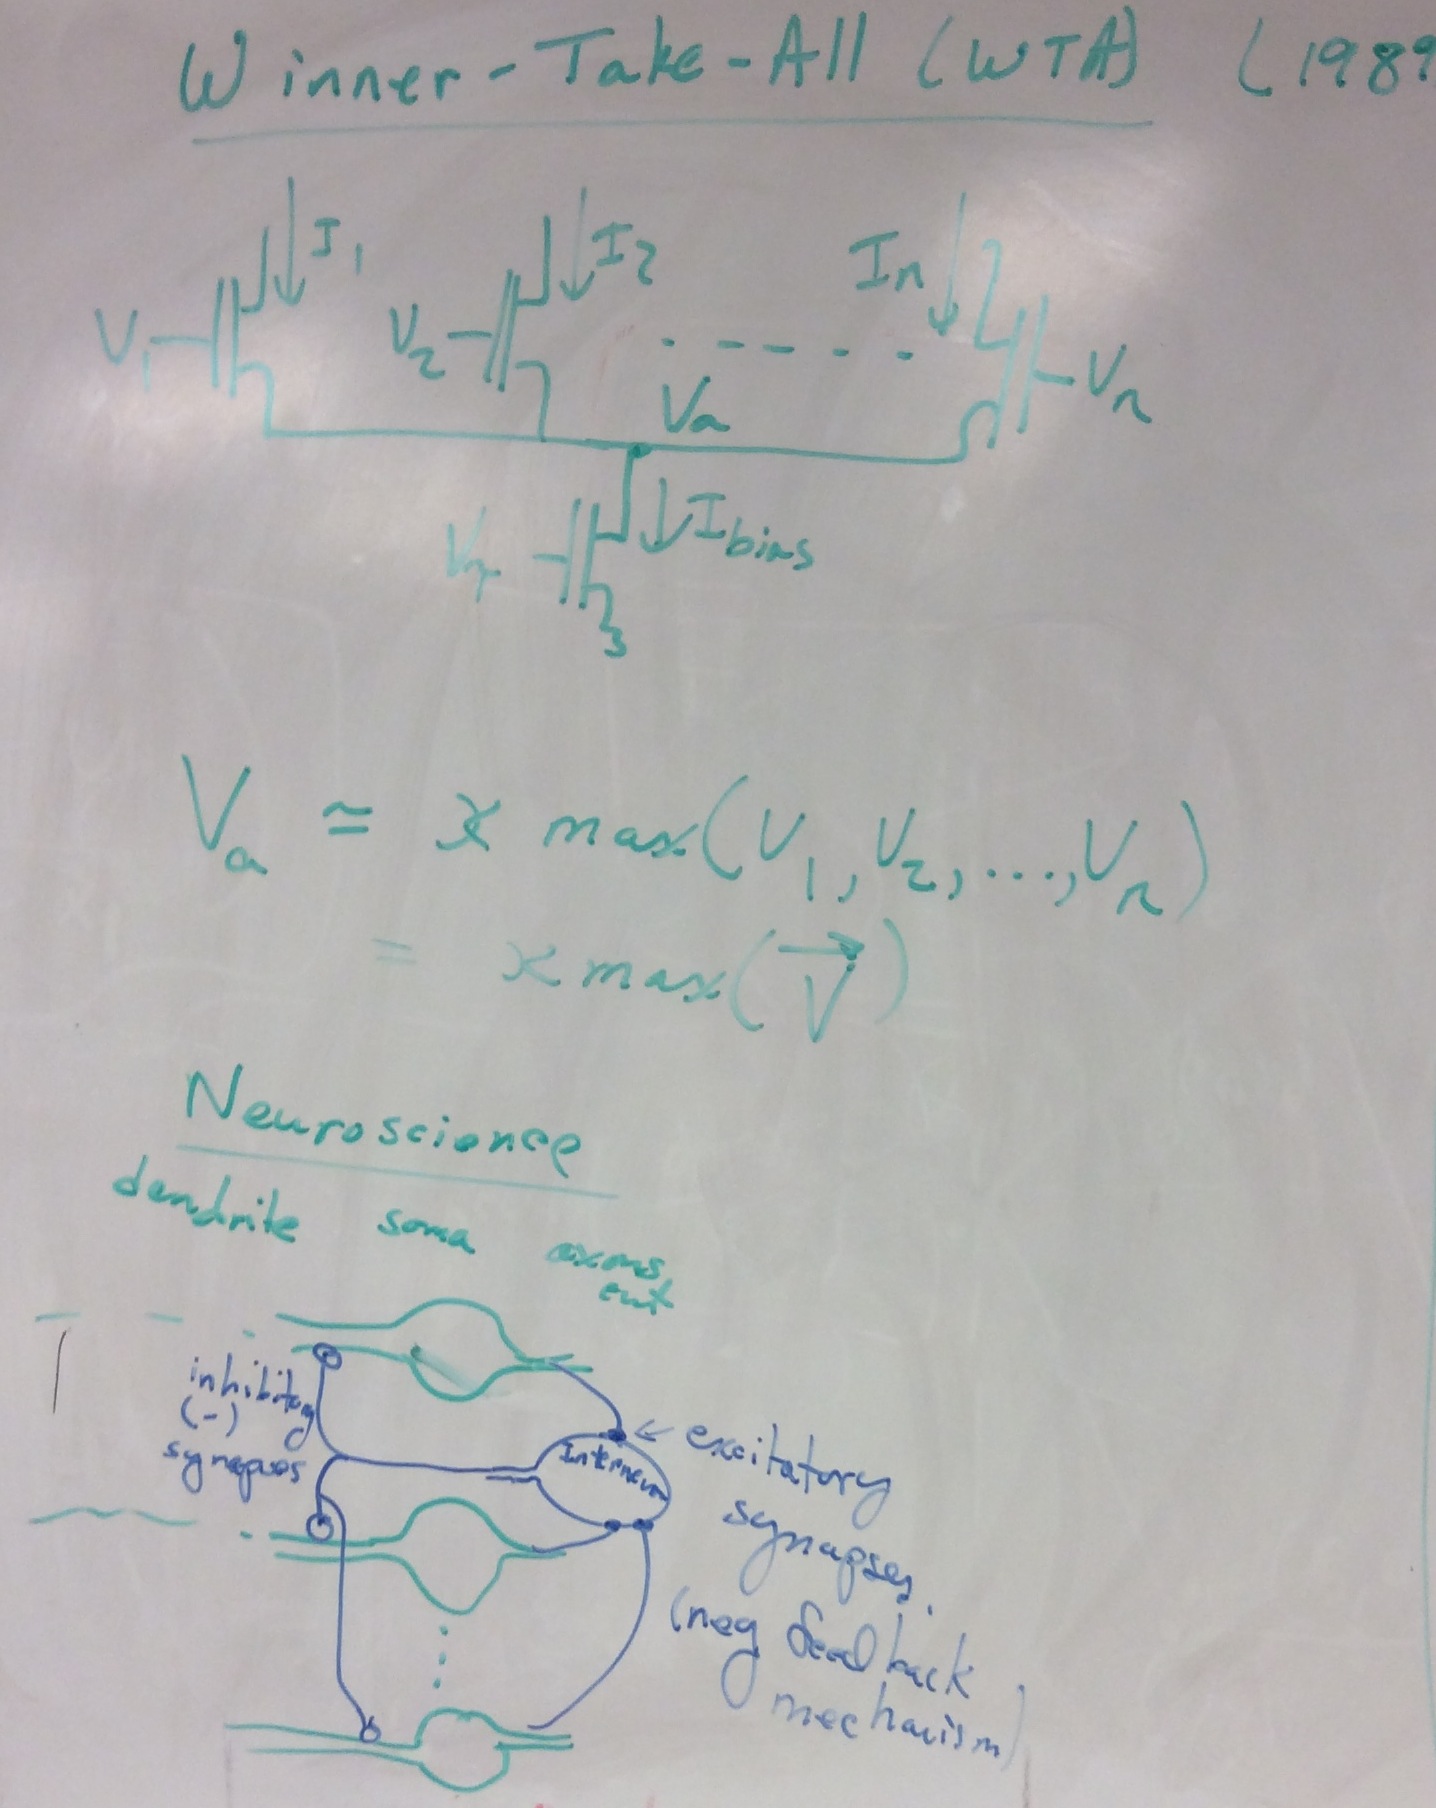 Winner-Take-All (WTA) (1989
I1 I2 In
V1 V2 . - - - . . Vn
Va
Ibias
Vτ
Va ≃ κ max(V1, V2, ..., Vn)
= κ max(V⃗)
Neuroscience
dendrite soma axons,
out
inhibitory
(-)
synapses
Interneuron
excitatory
synapses.
(neg feedback
mechanism)